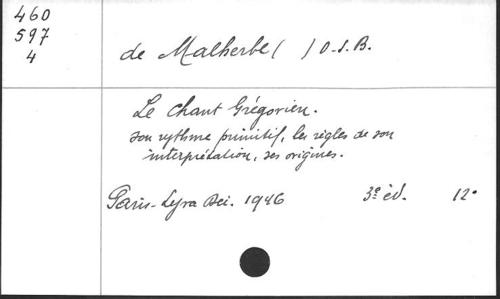 460
597
4
de Malherbe ( ) O.S.B.
Le Chant Grégorien.
son rythme primitif, les règles de son
interprétation, ses origines.
Paris - Lyra Dei. 1946 3e éd. 12°